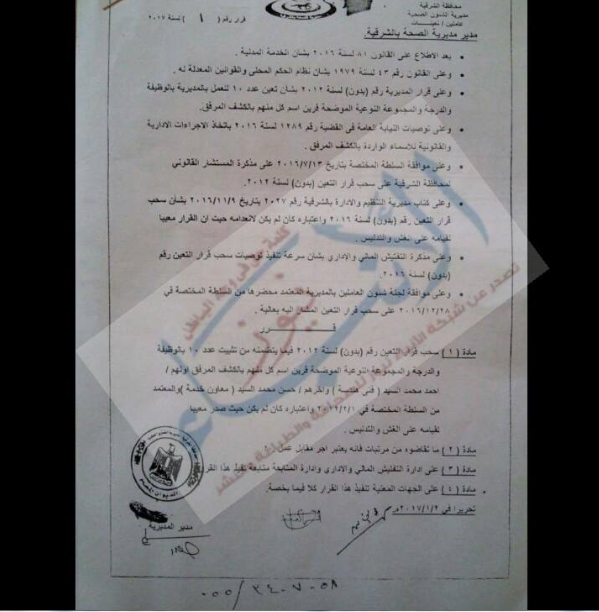 محافظة الشرقية
مديرية الشئون الصحية
عاملين / تعيينات
قرار رقم ( ١ ) لسنة ٢٠١٧
مدير مديرية الصحة بالشرقية
بعد الاطلاع على القانون ٨١ لسنة ٢٠١٦ بشان الخدمة المدنية .
وعلى القانون رقم ٤٣ لسنة ١٩٧٩ بشان نظام الحكم المحلى والقوانين المعدلة له .
وعلى قرار المديرية رقم (بدون) لسنة ٢٠١٢ بشان تعين عدد ١٠ للعمل بالمديرية بالوظيفة
والدرجة والمجموعة النوعية الموضحة قرين اسم كل منهم بالكشف المرفق.
وعلى توصيات النيابة العامة فى القضية رقم ١٢٨٩ لسنة ٢٠١٦ باتخاذ الاجراءات الادارية
والقانونية للاسماء الواردة بالكشف المرفق .
وعلى موافقة السلطة المختصة بتاريخ ٢٠١٦/٧/١٣ على مذكرة المستشار القانوني
لمحافظة الشرقية على سحب قرار التعين (بدون) لسنة ٢٠١٢.
وعلى كتاب مديرية التنظيم والادارة بالشرقية رقم ٢٠٢٧ بتاريخ ٢٠١٦/١١/٩ بشان سحب
قرار التعين رقم (بدون) لسنة ٢٠١٦ واعتباره كان لم يكن لانعدامه حيث ان القرار معيبا
لقيامه على الغش والتدليس .
وعلى مذكرة التفتيش المالي والاداري بشان سرعة تنفيذ توصيات سحب قرار التعين رقم
(بدون) لسنة ٢٠١٦.
وعلى موافقة لجنة شئون العاملين بالمديرية المعتمد محضرها من السلطة المختصة في
٢٠١٦/١٢/٢٨ على سحب قرار التعين المشار اليه بعالية .
قـــــرر
مادة ( ١ ) سحب قرار التعين رقم (بدون) لسنة ٢٠١٢ فيما يتضمنه من تثبيت عدد ١٠ بالوظيفة
والدرجة والمجموعة النوعية الموضحة قرين اسم كل منهم بالكشف المرفق اولهم /
احمد محمد السيد ( فنى هندسة ) واخرهم / حسن محمد السيد ( معاون خدمة ) والمعتمد
من السلطة المختصة في ٢٠٧٢/٢/١ واعتباره كان لم يكن حيث صدر معيبا
لقيامه على الغش والتدليس .
مادة ( ٢ ) ما تقاضوه من مرتبات فانه يعتبر اجر مقابل عمل
مادة ( ٣ ) على ادارة التفتيش المالي والاداري وادارة المتابعة متابعة تنفيذ هذا القرار
مادة ( ٤ ) على الجهات المعنية تنفيذ هذا القرار كلا فيما يخصة .
تحريرا في ٢٠١٧/١/٢م
مدير المديرية